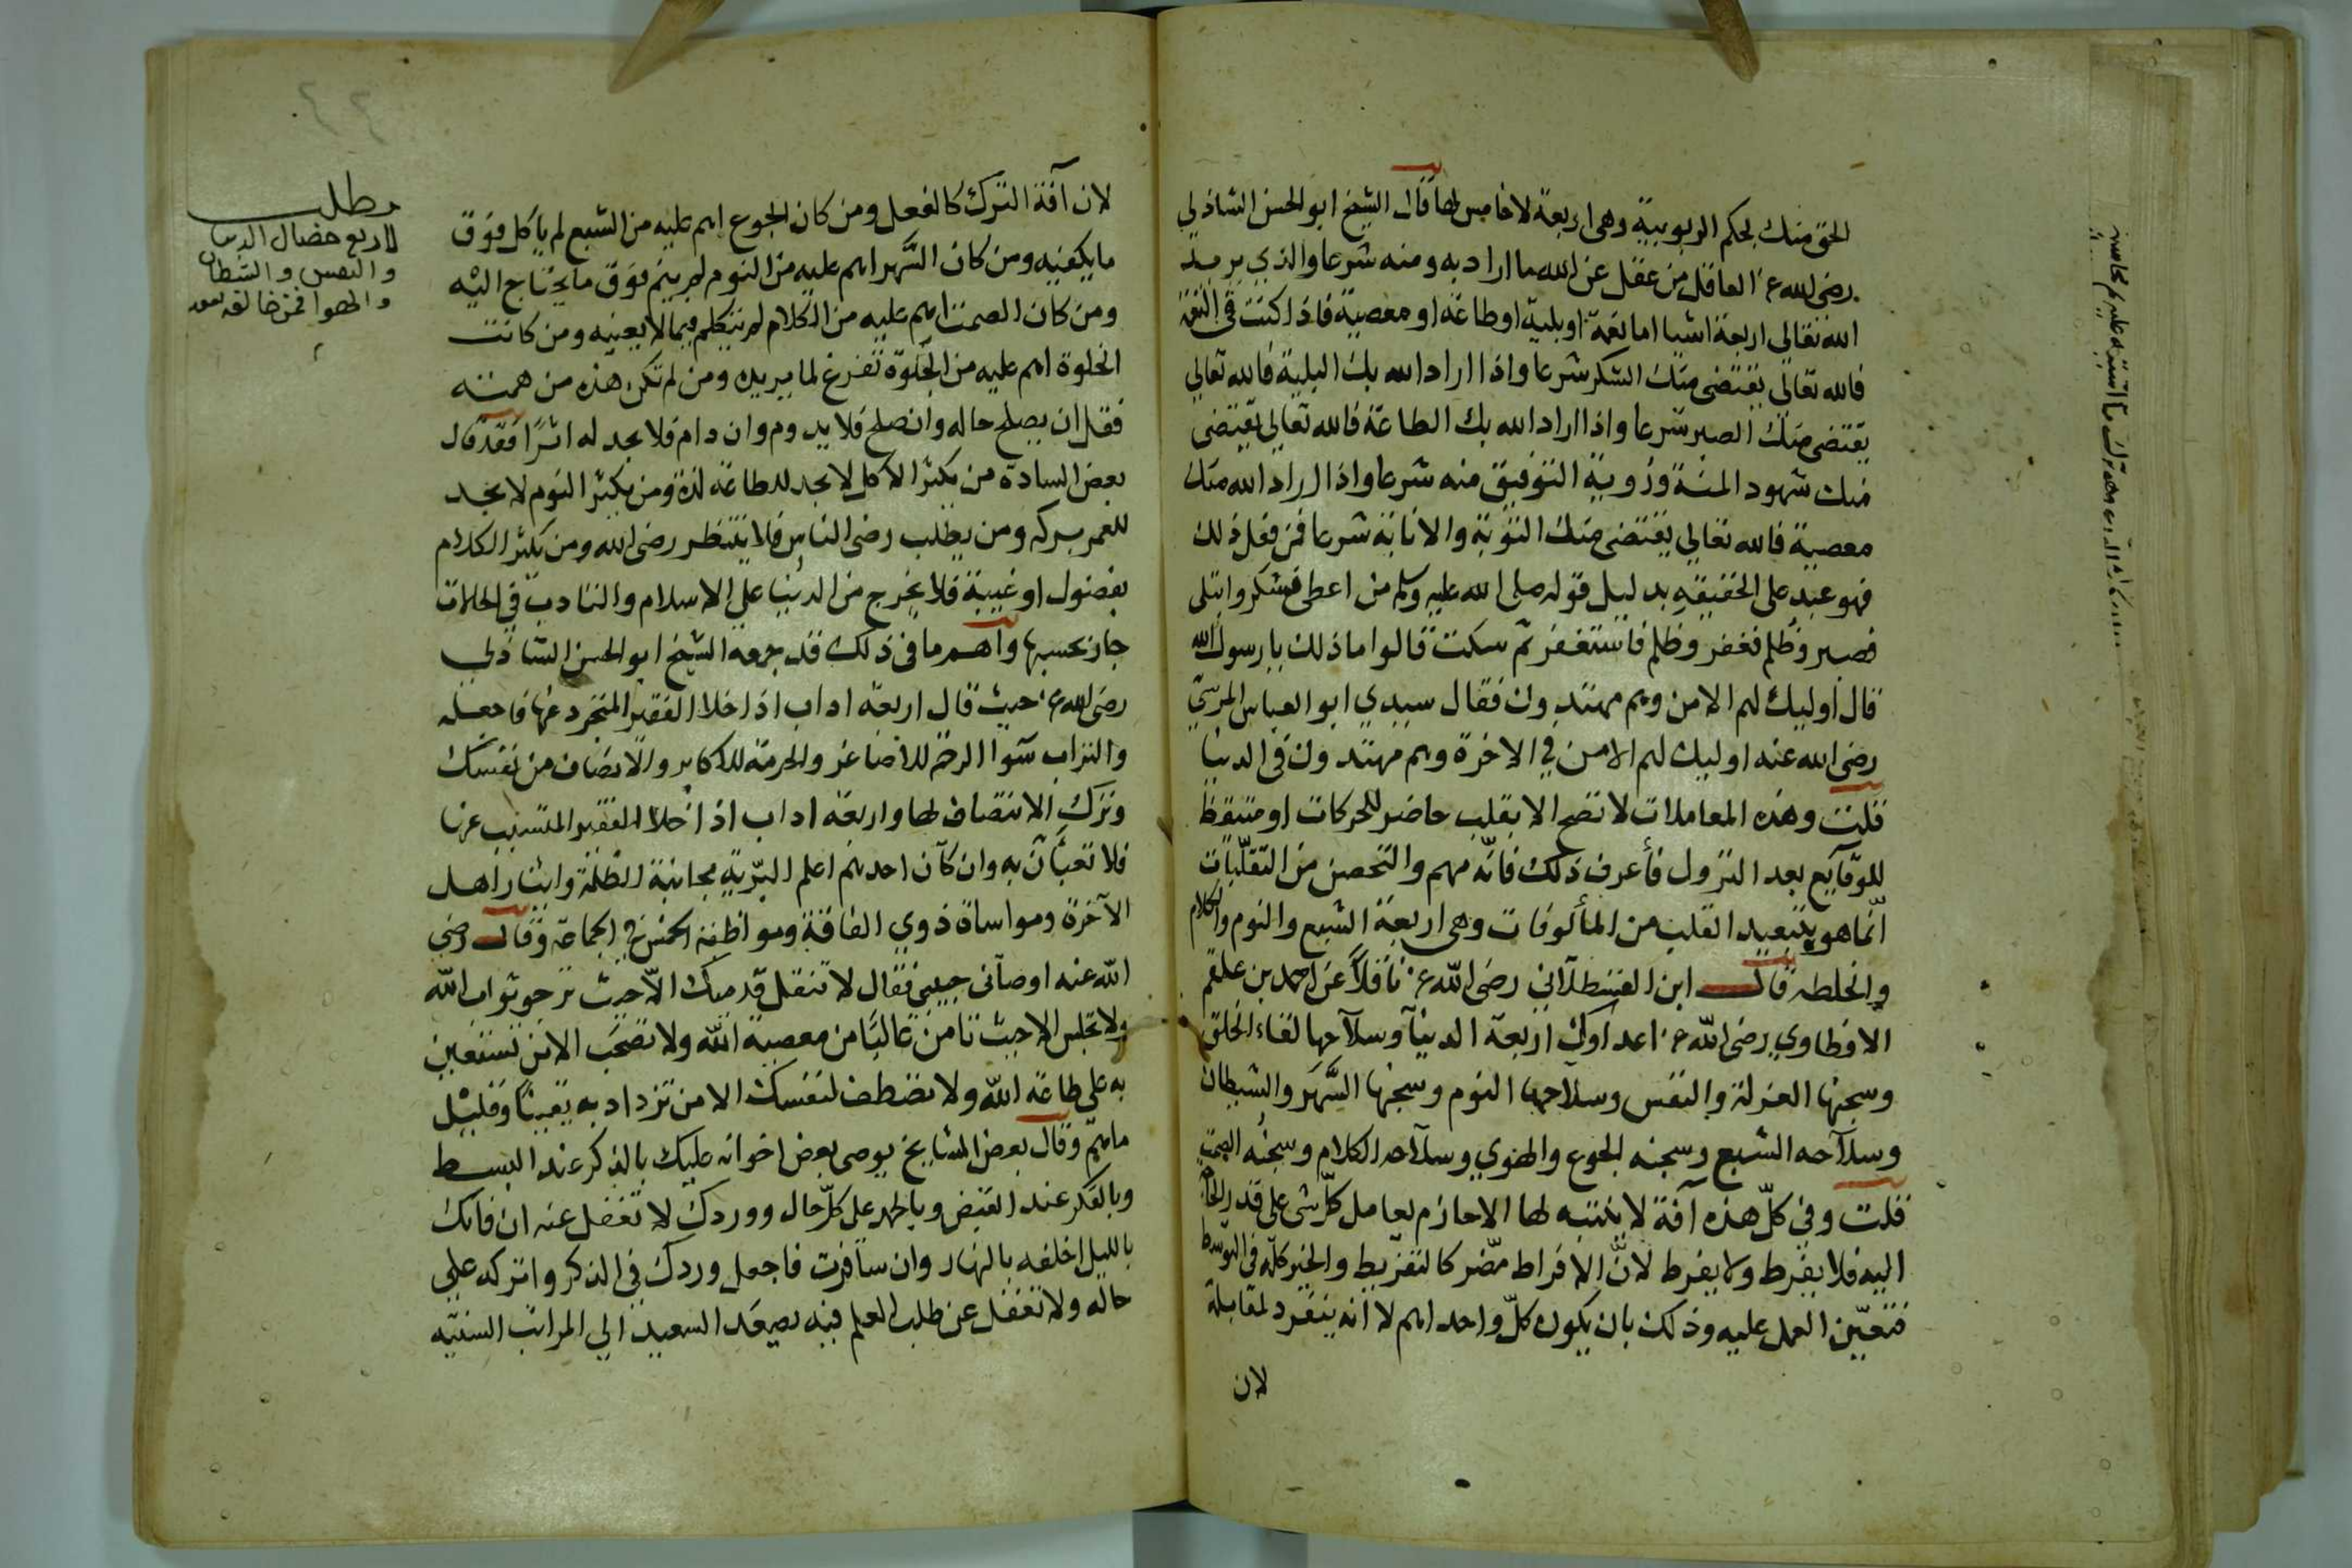 الحق منك بحكم الربوبية وهى اربعة لا خامس لها قال الشيخ ابو الحسن الشاذلي
رضى الله عنه العاقل من عقل عن الله ما اراد به ومنه شرعا والذي يريد
الله تعالى اربعة اشيا اما نعمة او بلية او طاعة او معصية فاذا كنت فى النعمة
فالله تعالى يقتضى منك الشكر شرعا واذا اراد الله بك البلية فالله تعالى
يقتضى منك الصبر شرعا واذا اراد الله بك الطاعة فالله تعالى يقتضى
منك شهود المنة وروية التوفيق منه شرعا واذا اراد الله منك
معصية فالله تعالى يقتضى منك التوبة والانابة شرعا فمن فعل ذلك
فهو عبد على الحقيقة بدليل قوله صلى الله عليه وسلم من اعطى فشكر وابتلى
فصبر وظلم فغفر وظلم فاستغفر ثم سكت قالوا ماذا لك يا رسول الله
قال اوليك لهم الامن وهم مهتدون فقال سيدي ابو العباس المرسي
رضى الله عنه اوليك لهم الامن في الاخرة وهم مهتدون فى الدنيا
قلت وهذه المعاملات لا تصح الا بقلب حاضر للحركات او متيقظ
للوقآيع بعد النزول فأعرف ذلك فانّه مهم والتحصن من التقلّبات
انّما هو بتبعيد القلب من المألوفات وهى اربعة الشبع والنوم والكلام
والخلطه قال ابن القسطلآني رضى الله عنه ناقلاً عن احمد بن علقم
الافطاوي رضى الله عنه اعداوك اربعة الدنيآ وسلآحها لقاء الخلق
وسجنها العزلة والنفس وسلآحها النوم وسجنها السَّهر والشيطان
وسلآحه الشبع وسجنه الجوع والهوي وسلآحه الكلام وسجنُه الصمت
قلت وفي كلّ هذه آفة لا ينتبه لها الا حازم يعامل كلّ شى على قدر الحاجة
اليه فلا يفرط ولا يفرط لانّ الافراط مضّر كالتفريط والخير كله فى التوسط
فتعيّن العمل عليه وذلك بان يكون كلّ واحد اهم لا انه ينفرد لمقابلة
لان
لان آفة الترك كالفعل ومن كان الجوع اهم عليه من الشبع لم ياكل فوق
ما يكفيه ومن كان السَّهر اهم عليه من النوم لم ينم فوق ما يحتاج اليه
ومن كان الصمت اهم عليه من الكلام لم يتكلم فيما لا يعنيه ومن كانت
الخلوة اهم عليه من الجلوة تفرغ لما يريده ومن لم تكن هذه من همته
فقل ان يصلح حاله وان صلح فلا يدوم وان دام فلا يجد له اثرًا فقد قال
بعض السادة من يكثر الاكل لا يجد للطاعة لذة ومن يكثر النوم لا يجد
للعمر بركه ومن يطلب رضى الناس فلا ينتظر رضى الله ومن يكثر الكلام
بفضول او غيبة فلا يخرج من الدنيا على الاسلام والتادب في الحالات
جاز بحسبها واهم ما فى ذلك قد جمعه الشيخ ابو الحسن الشاذلي
رضى الله عنه حيث قال اربعة اداب اذا خلا الفقير المتجرد عنها فاجعله
والتراب سَوآ الرحمة للاصاغر والحرمة للاكابر والانصاف من نفسك
وترك الانتصاف لها واربعة اداب اذا خلا الفقير المتسبب عنها
فلا تعبأنّ به وان كآن احدهم اعلم البّرية مجانبة الظلمة وايثار اهل
الآخرة ومواساة ذوي الفاقة ومواظبة الخمس في الجماعة وقال رضى
الله عنه اوصآنى حبيبي فقال لا تنقل قدميك الّا حيث ترجو ثواب الله
ولا تجلس الا حيث تامن غالبًا من معصية الله ولا تصحب الا من تستعين
به على طاعة الله ولا تصطف لنفسك الا من تزداد به يقينًا وقليل
ماهم وقال بعض المشايخ يوصى بعض اخوانه عليك بالذكر عند البسط
وبالفكر عند القبض وبالحمد على كلّ حال ووردك لا تغفل عنه ان فاتك
بالليل اخلفه بالنهار وان سآفرت فاجعل وردك فى الذكر واتركه على
حاله ولا تغفل عن طلب العلم فبه يصعَد السعيد الى المراتب السنيّه
مطلب
لاربع خصال الدنيا
والنفس والشيطان
والهوا فمن خالفه